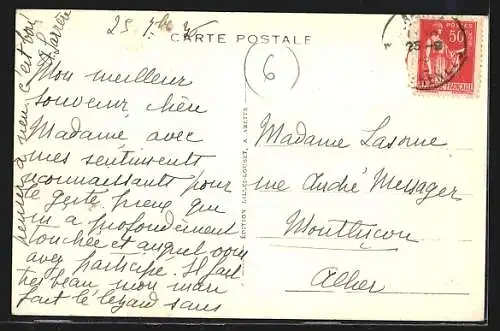 25 7bre
CARTE POSTALE
6
50c
25-9
Mon meilleur
souvenir chère
Madame avec
mes sentiments
reconnaissants pour
le geste pieux qui
m'a profondément
touchée et auquel vous
avez participé. Il fait
très beau, mon mari
fait le lézard sans
penser à rien c'est bon
Madame Laserne
rue André Messager
Montluçon
Allier